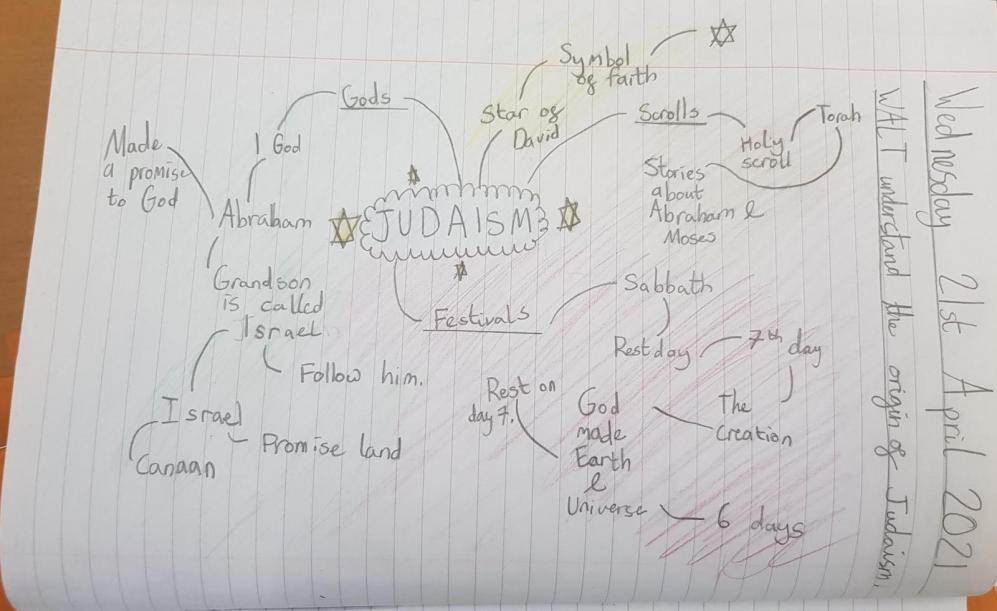 Wednesday 21st April 2021
WALT understand the origin of Judaism.
JUDAISM
Gods
1 God
Abraham
Made
a promise
to God
Grandson
is called
Israel
Follow him.
Israel
Promise land
Canaan
Star of
David
Symbol
of faith
Scrolls
Holy
scroll
Torah
Stories
about
Abraham &
Moses
Festivals
Sabbath
Rest day
7th day
The
Creation
God
made
Earth
&
Universe
6 days
Rest on
day 7.